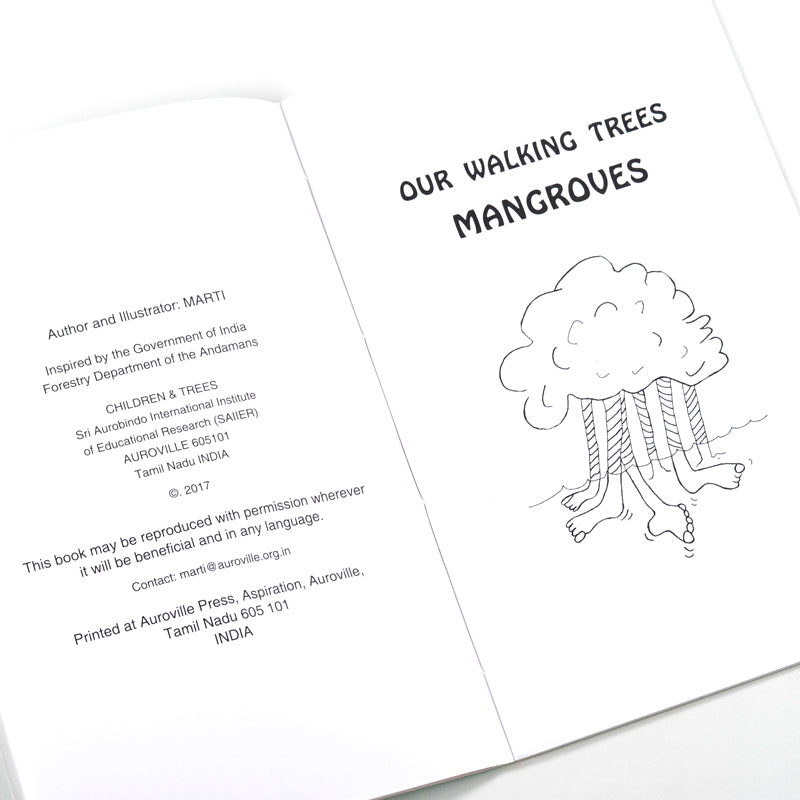 Author and Illustrator: MARTI
Inspired by the Government of India
Forestry Department of the Andamans
CHILDREN & TREES
Sri Aurobindo International Institute
of Educational Research (SAIIER)
AUROVILLE 605101
Tamil Nadu INDIA
©. 2017
This book may be reproduced with permission wherever
it will be beneficial and in any language.
Contact: marti@auroville.org.in
Printed at Auroville Press, Aspiration, Auroville,
Tamil Nadu 605 101
INDIA
OUR WALKING TREES
MANGROVES